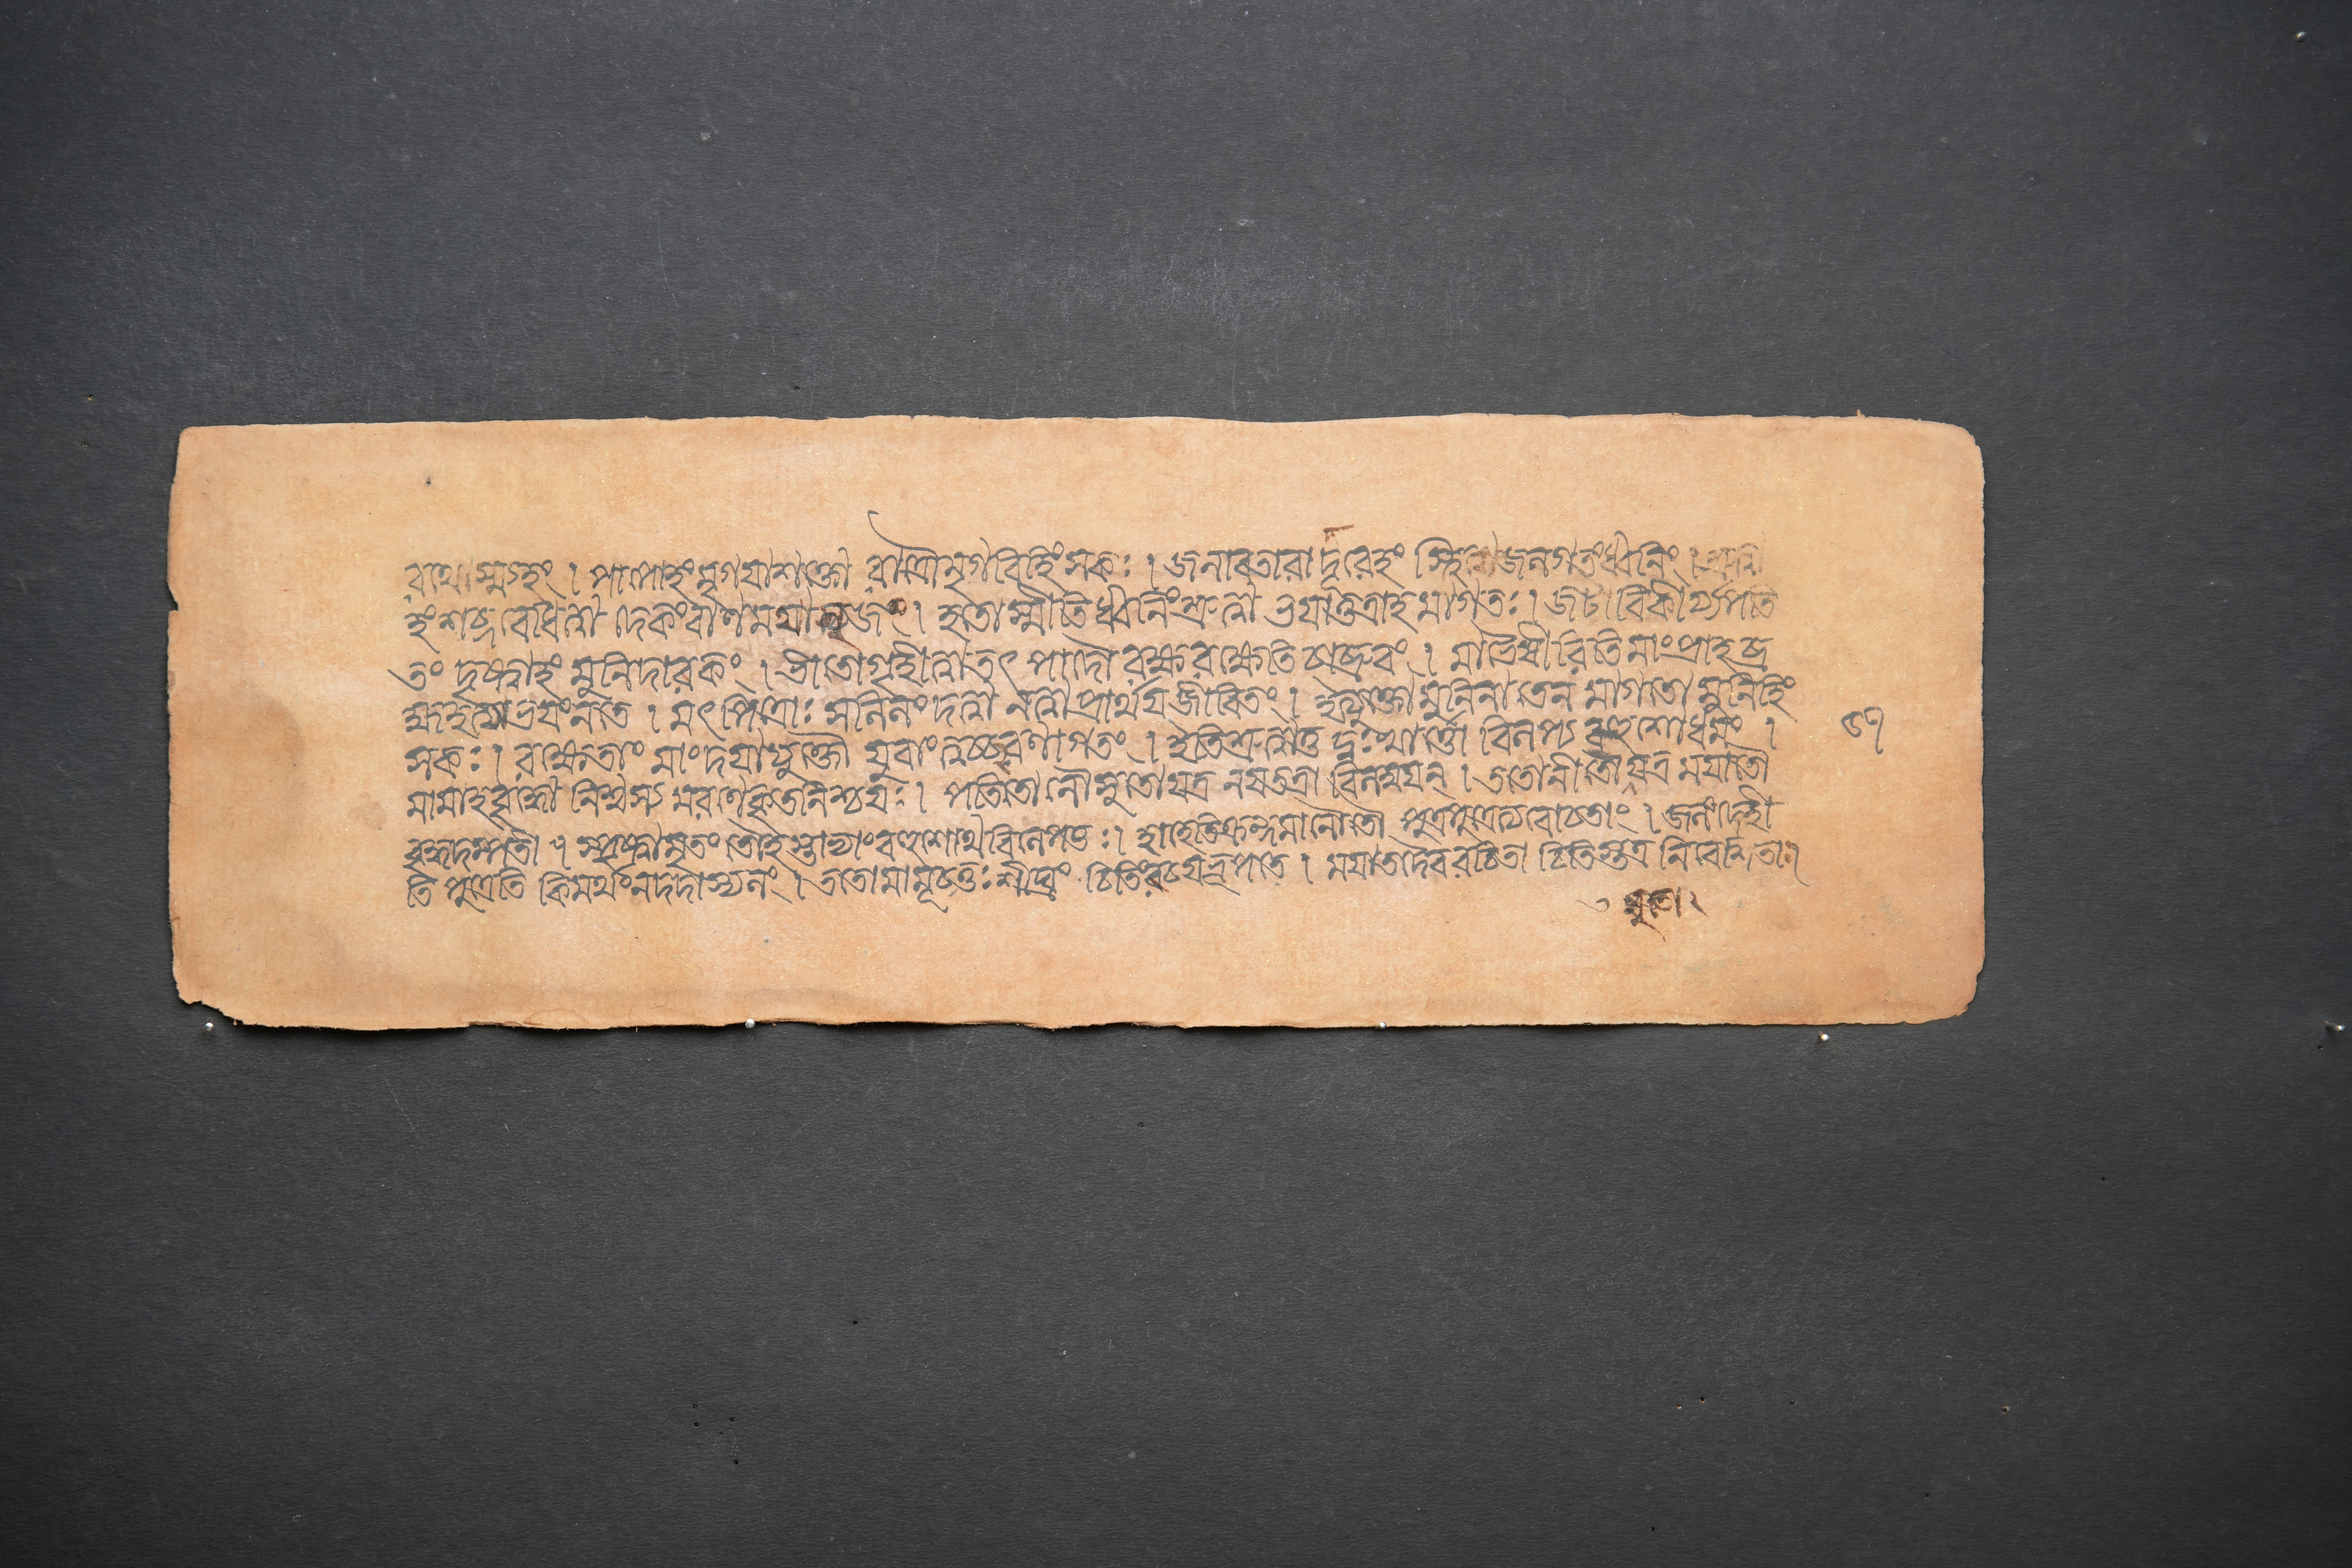 রাথাস্ম্যহং । পাপোহং মৃগয়াশক্তো রাত্রৌ মৃগবিহিংসকঃ । জলাবতারাদ্দূরেহং স্থিত্বা জলগতং ধ্বনিং । শ্রুত্বা
হং শব্দবেধিত্বাদেকং বাণমথাত্যজং । হতোস্মীতি ধ্বনিং শ্রুত্বা ভয়াত্তত্রাহমাগতঃ । জটা বিকীর্য্য পতি
তং দৃষ্ট্বাহং মুনিদারকং । ভীতো গৃহীত্বা তৎপাদৌ রক্ষ রক্ষেতি চাব্রুবং । মাভৈষীরিতি মাং প্রাহ ব্র
হ্মহত্যাভয়ং ন তে । মৎপিত্রোঃ সলিলং দত্বা নত্বা প্রার্থয় জীবিতং । ইত্যুক্তো মুনিনা তেন মাগতো মুনিহিং
সকঃ । রক্ষেতাং মাং দয়াযুক্তৌ যুবাং শরণাগতং । ইতি শ্রুত্বা তু দুঃখার্ত্তৌ বিলপ্য বহুশো ।
মামাহ নিশ্বস্য মরণে কৃতনিশ্চয়ঃ । পতিতো নৌ সুতো যত্র নয় তত্রাবিলম্বয়ন্ । ততো নীতৌ যত্র ময়া তৌ
বৃদ্ধদম্পতী । স্পৃষ্ট্বা সুতং তৌ হস্তাভ্যাং বহুশোথ বিলেপতুঃ । হাহেতি ক্রন্দমানৌ তৌ পুত্রপুত্রেত্যবোচতাং । জলং দেহী
তি পুত্রেতি কিমর্থং ন দদাস্যলং । ততো মামূচতুঃ শীঘ্রং চিতিং রচয় নৃপতে । ময়া তদৈব রচিতা চিতিস্তত্র নিবেশিতা ।
সুতো ২